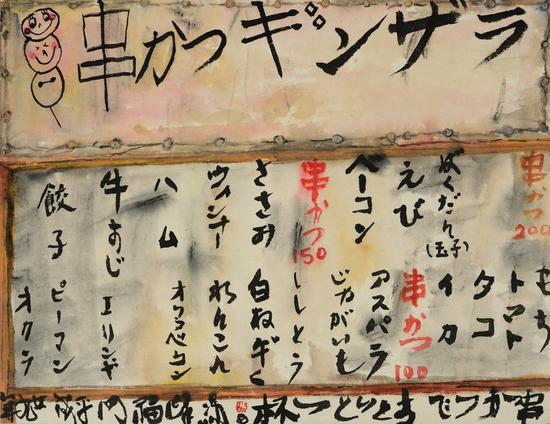 串かつギンザラ
串かつ200
もち
トマト
タコ
ばくだん(玉子)
イカ
えび
串かつ100
アスパラ
ベーコン
じゃがいも
串かつ150
ししとう
ささみ
白ねぎ
ウィンナー
れんこん
ハム
オクラベーコン
牛すじ
エリンギ
餃子
ピーマン
オクラ